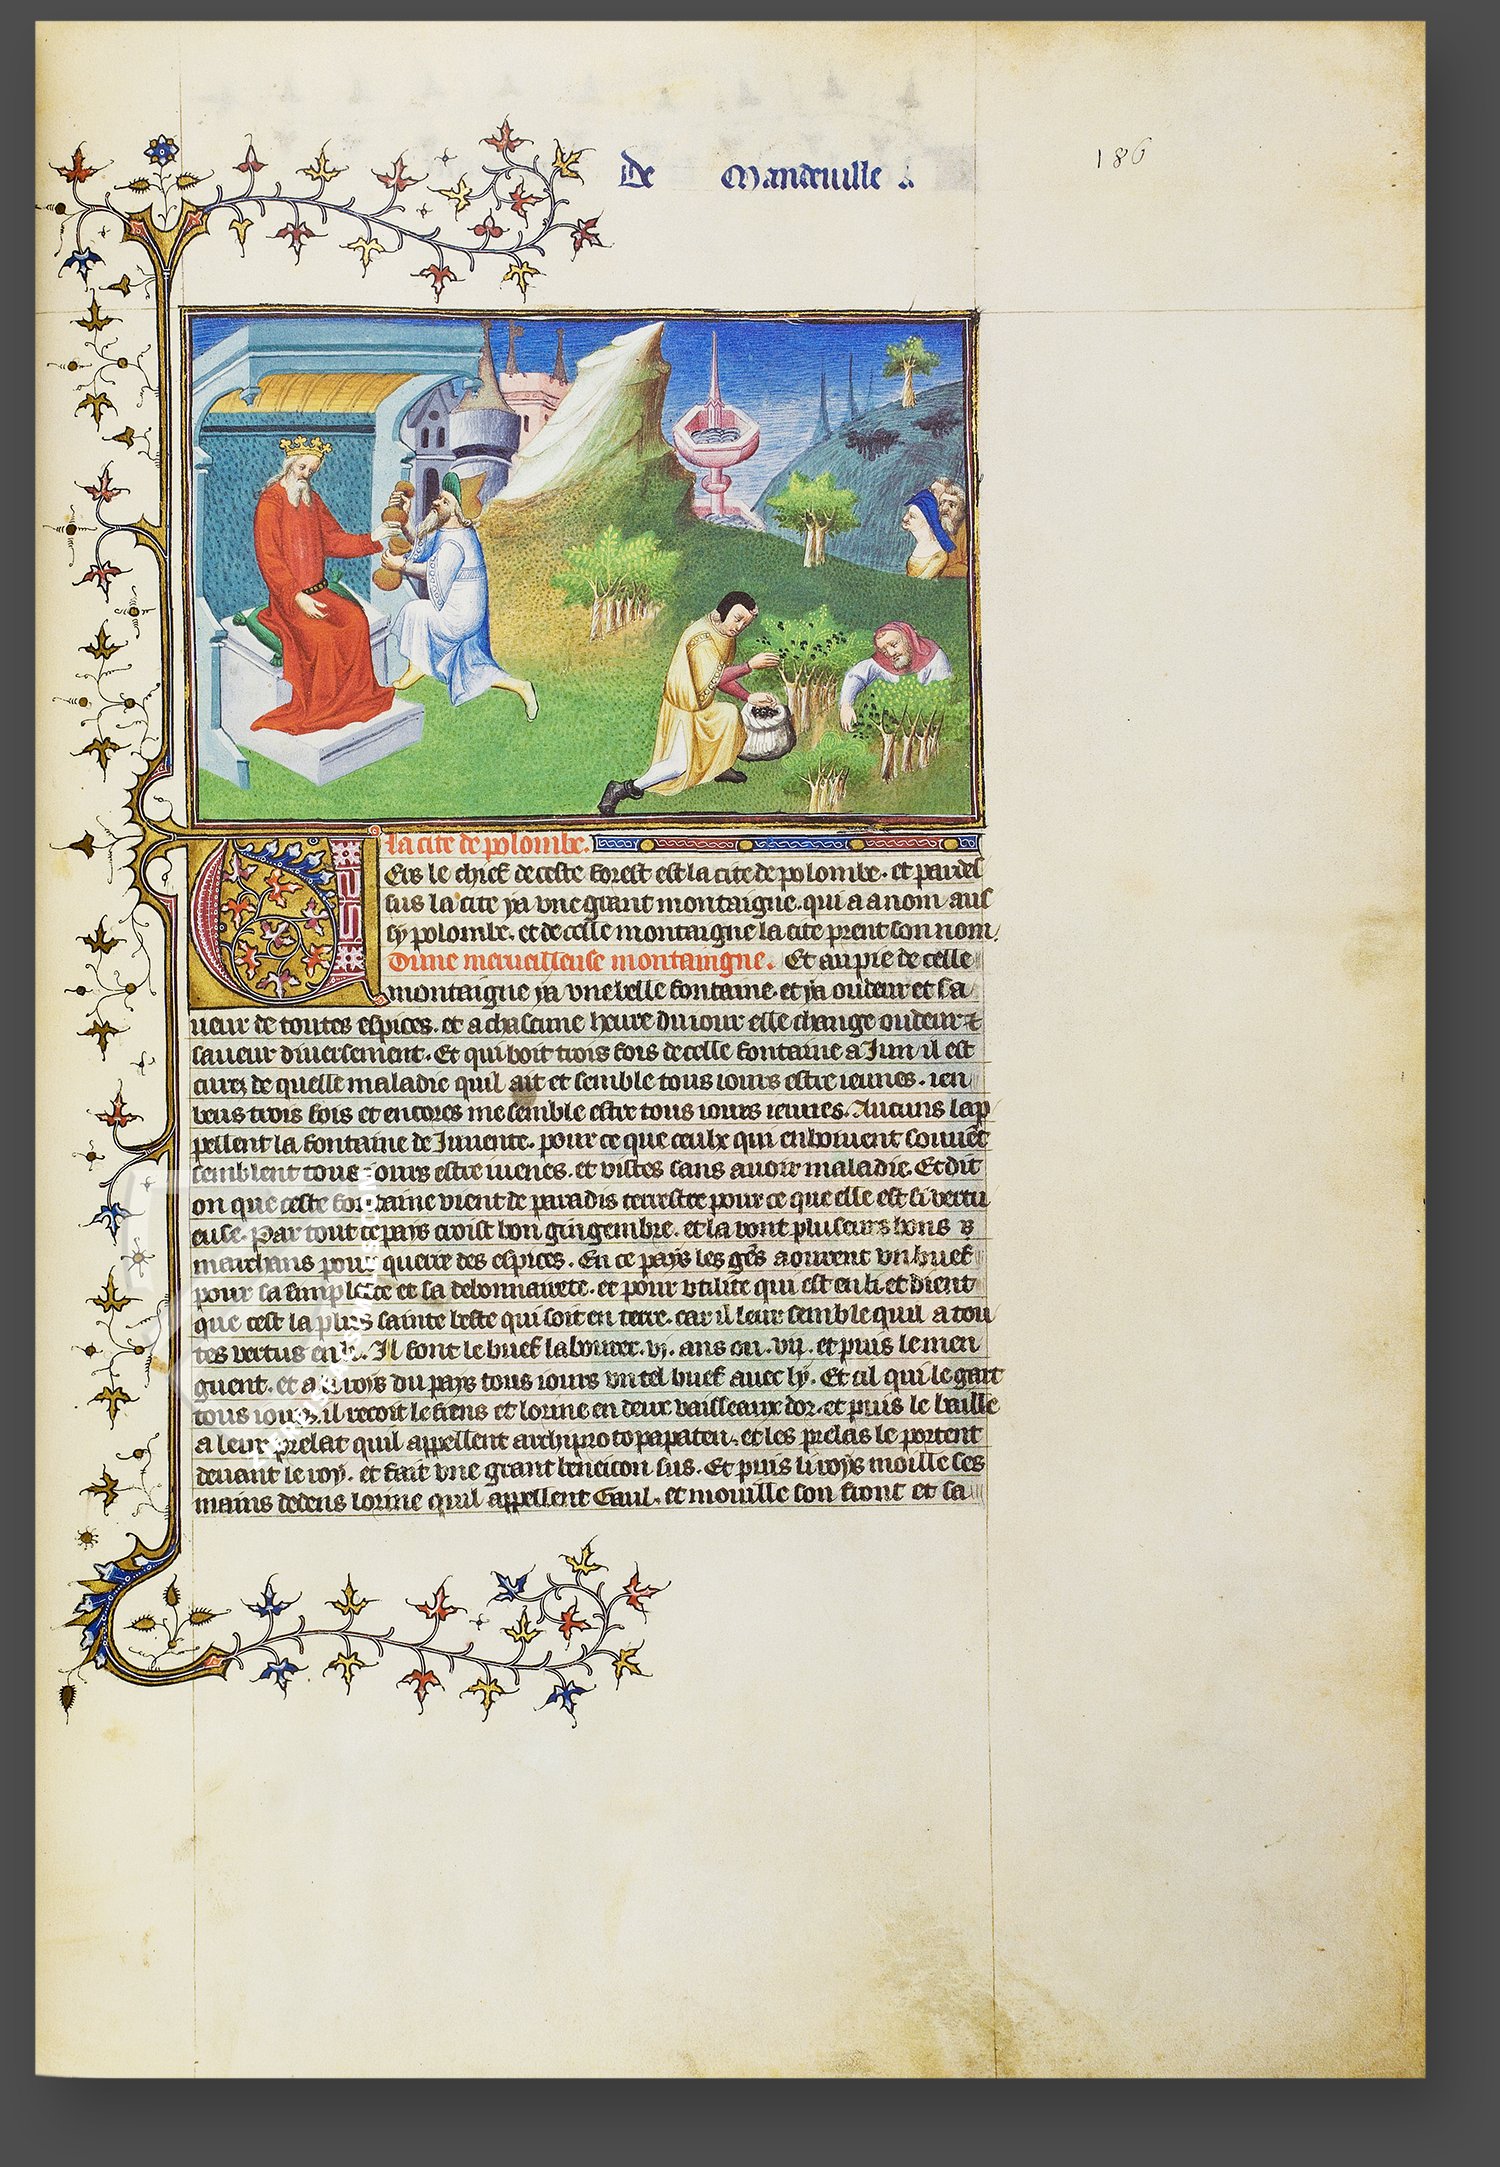 De Mandeuille ..
186
La cite de polombe.
Vers le chief de ceste forest est la cite de polombe. et par des
sus la cite ya vne grant montaigne. qui a a nom aus
sy polombe. et de celle montaigne la cite prent son nom.
Dune merueilleuse montaingne. Et au pie de celle
montaigne ya vne belle fontaine. et ya oudeur et sa
ueur de toutes espices. et a chascune heure du iour elle change oudeur et
saueur diuersement. Et qui boit trois fois de celle fontaine a Jun il est
curez de quelle maladie quil ait et semble tous iours estre ieunes. ien
beus trois fois et encores me semble estre tous iours ieunes. Aucuns lap
pellent la fontaine de Juuente. pour ce que ceulx qui en boiuent souuẽt
semblent tous iours estre iuenes. et vistes sans auoir maladie. Et dit
on que ceste fontaine vient de paradis terrestre pour ce que elle est si vertu
euse. Par tout ce pays croist bon gingembre. et la vont pluseurs bons
marchans pour querre des espices. En ce pays les gẽs aourent vn buef
pour sa simplete et sa debonnairete. et pour vtilite qui est en li. et dient
que cest la plus sainte beste qui soit en terre. car il leur semble quil a tou
tes vertus en li. Il font le buef labourer. vj. ans ou. vij. et puis le men
guent. et a li roys du pays tous iours vn tel buef auec ly. Et cil qui le gart
tous iours. il recoit le fiens et lorine en deux vaisseaux dor. et puis le baille
a leur prelat quil appellent archiprotopapaten. et les prelas le portent
deuant le roy. et fait vne grant beneicon sus. Et puis li roys moille ses
mains dedens lorine quil appellent Gaul. et mouille son front et sa